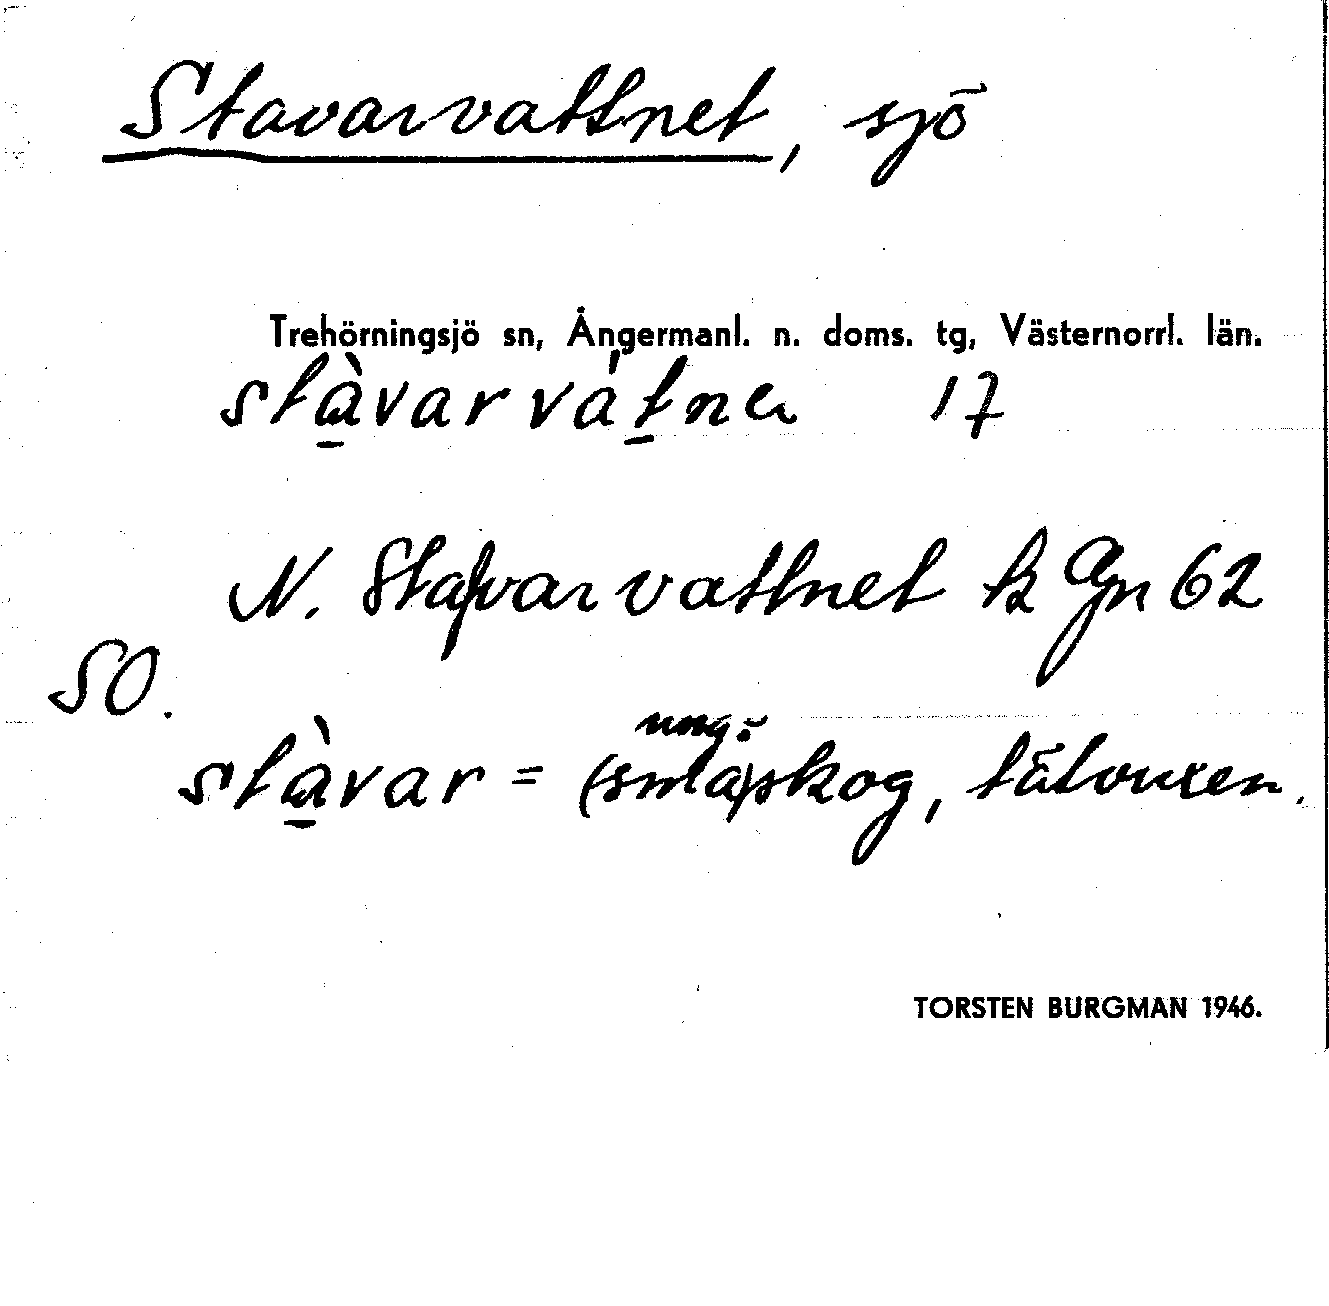 Stavarvattnet, sjö
Trehörningsjö sn, Ångermanl. n. doms. tg, Västernorrl. län.
stàvarvátnɐ 17
N. Stafvarvattnet k Gn 62
SO.
ung.
stàvar = (små)skog, tätvuxen.
TORSTEN BURGMAN 1946.